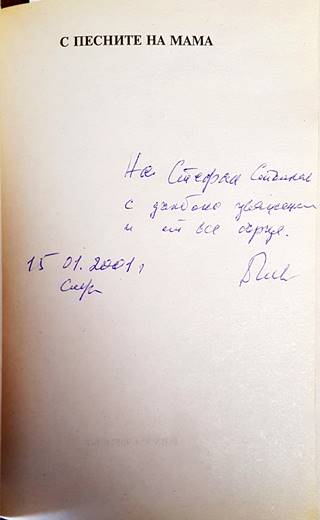 С ПЕСНИТЕ НА МАМА
На Стефан
с дълбоко уважение
и от все сърце.
15 01.2001 г